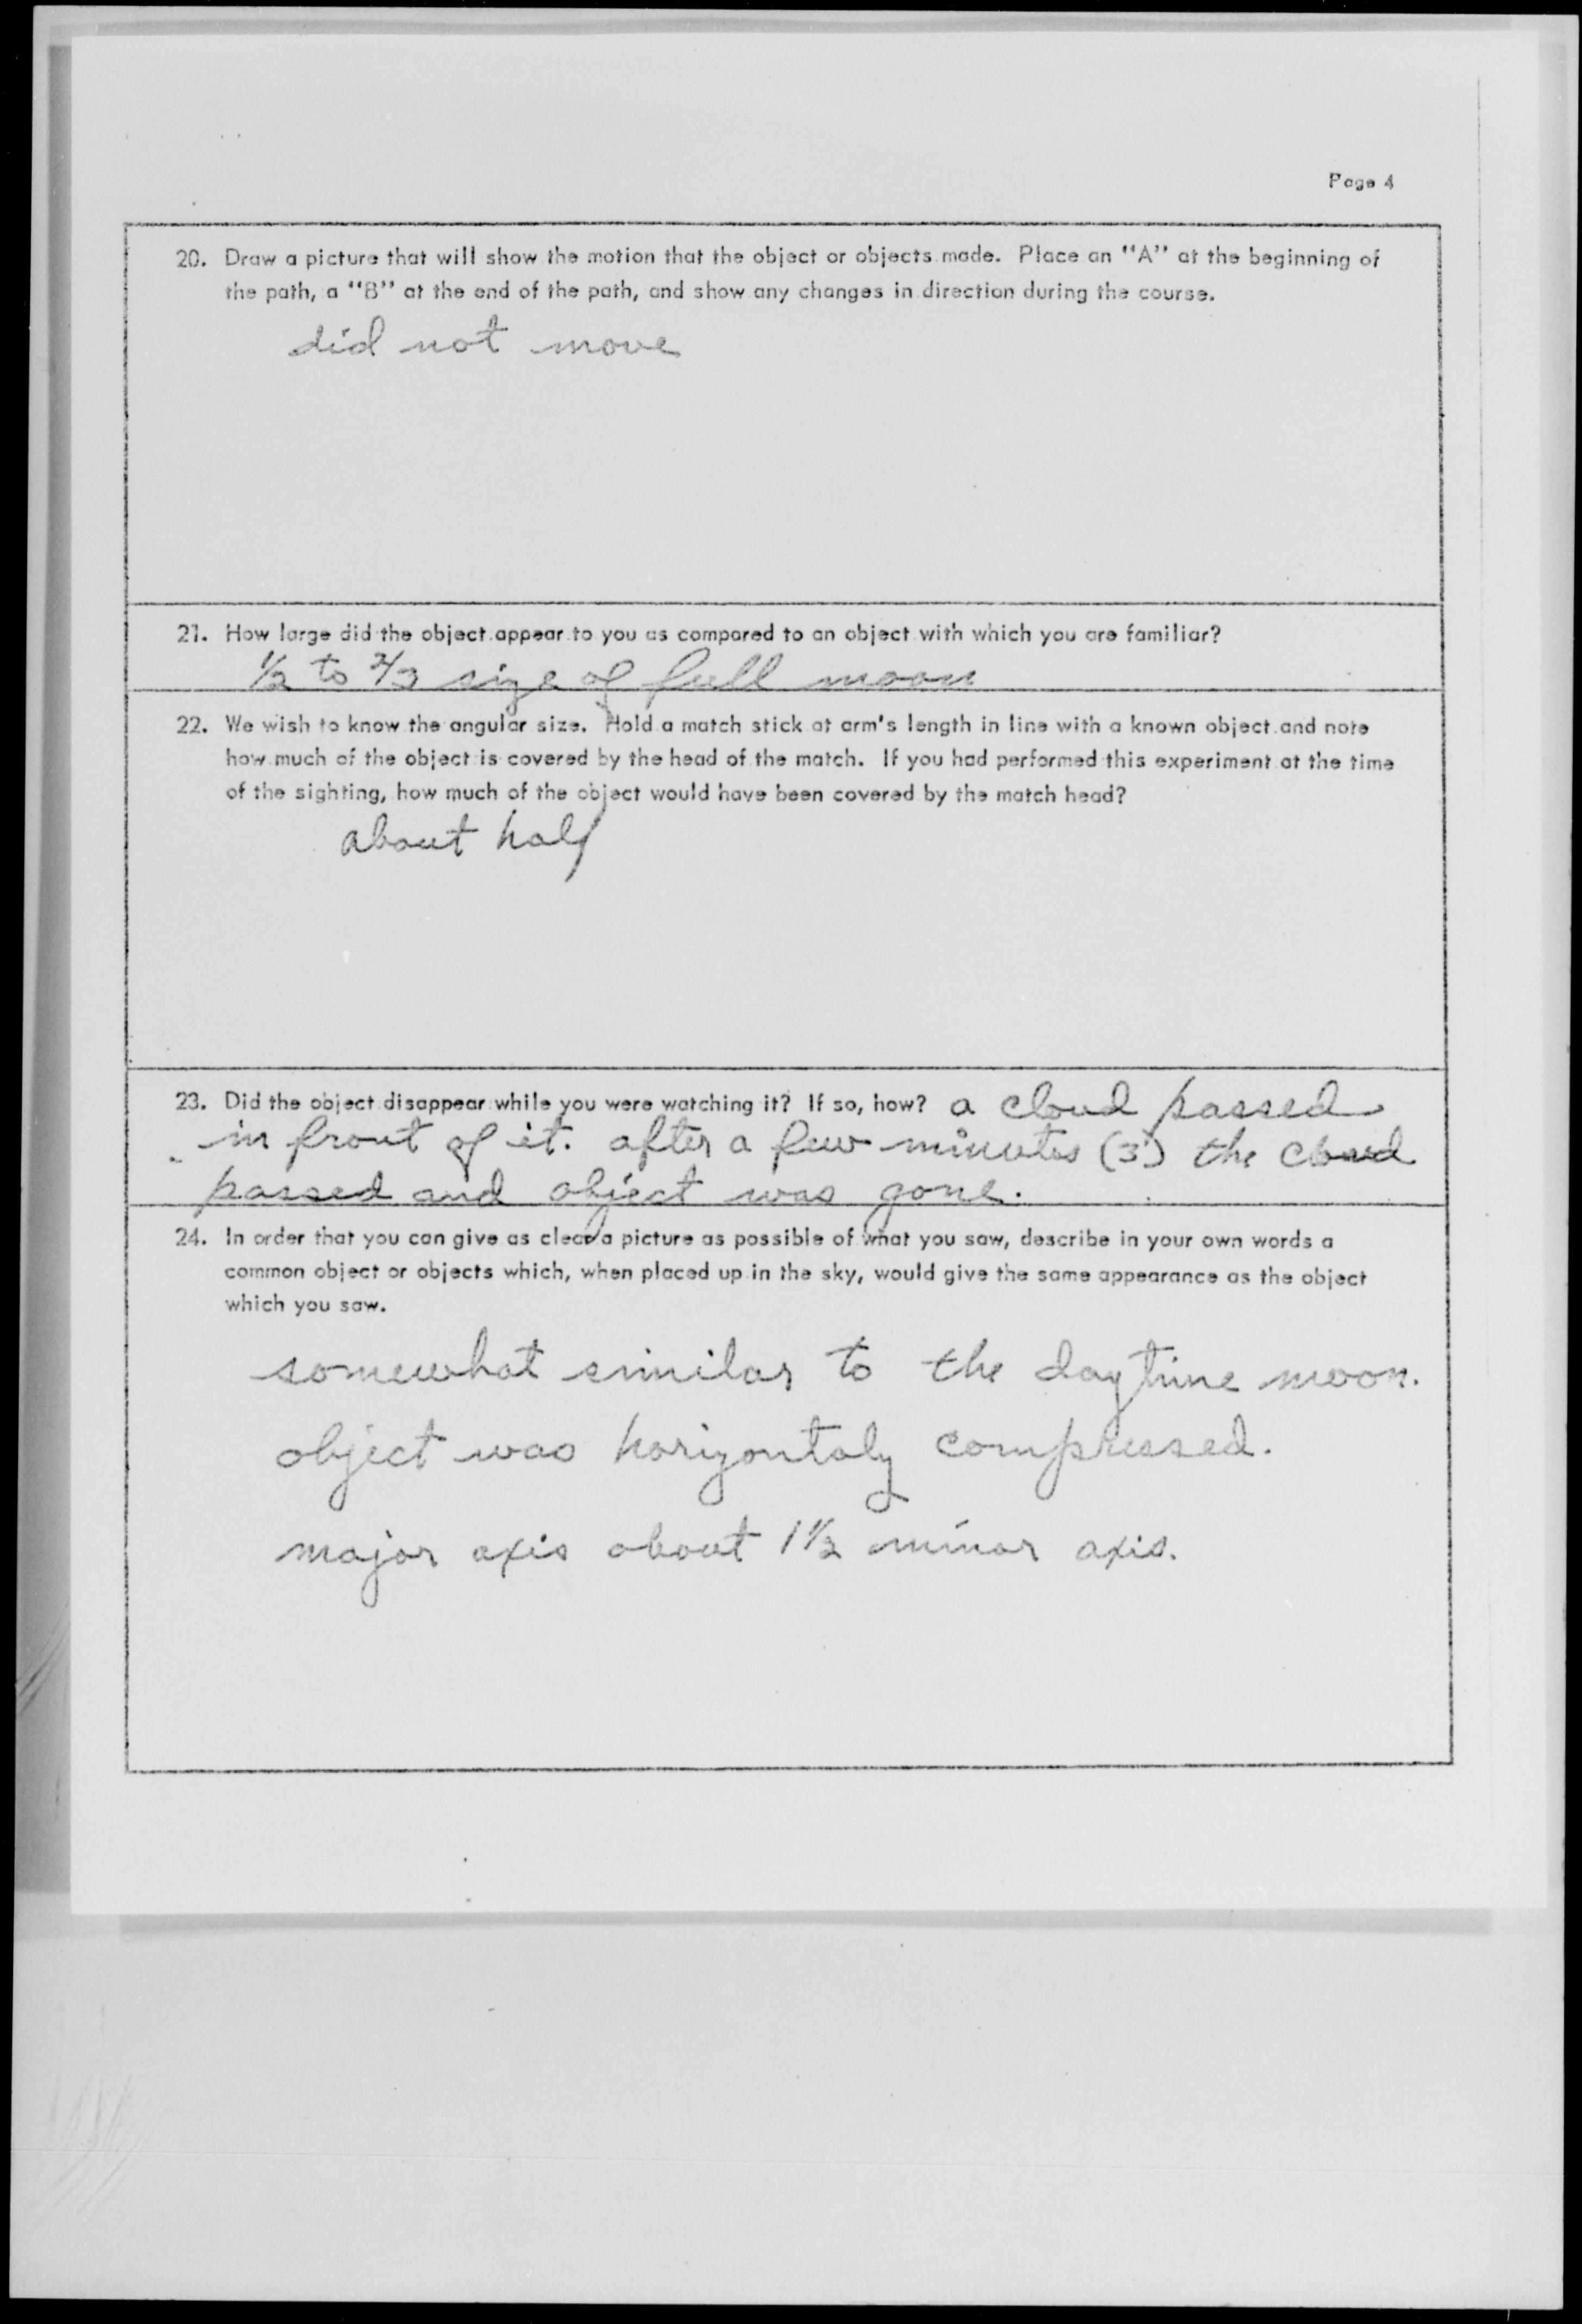 Page 4
20. Draw a picture that will show the motion that the object or objects made. Place an "A" at the beginning of
the path, a "B" at the end of the path, and show any changes in direction during the course.
did not move
21. How large did the object appear to you as compared to an object with which you are familiar?
1/2 to 2/3 size of full moon
22. We wish to know the angular size. Hold a match stick at arm's length in line with a known object and note
how much of the object is covered by the head of the match. If you had performed this experiment at the time
of the sighting, how much of the object would have been covered by the match head?
about half
23. Did the object disappear while you were watching it? If so, how? a cloud passed
in front of it. after a few minutes (3) the cloud
passed and object was gone.
24. In order that you can give as clear a picture as possible of what you saw, describe in your own words a
common object or objects which, when placed up in the sky, would give the same appearance as the object
which you saw.
somewhat similar to the daytime moon.
object was horizontaly compressed.
major axis about 1 1/2 minor axis.